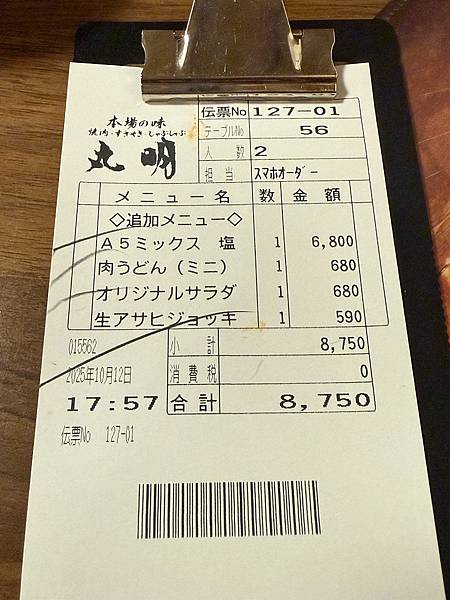 本場の味
焼肉・すきやき・しゃぶしゃぶ
丸明
伝票No 127-01
テーブルNo 56
人数 2
担当 スマホオーダー
メニュー名 数 金額
◇追加メニュー◇
A5ミックス 塩 1 6,800
肉うどん（ミニ） 1 680
オリジナルサラダ 1 680
生アサヒジョッキ 1 590
015562 小計 8,750
2025年10月12日 消費税 0
17:57 合計 8,750
伝票No 127-01